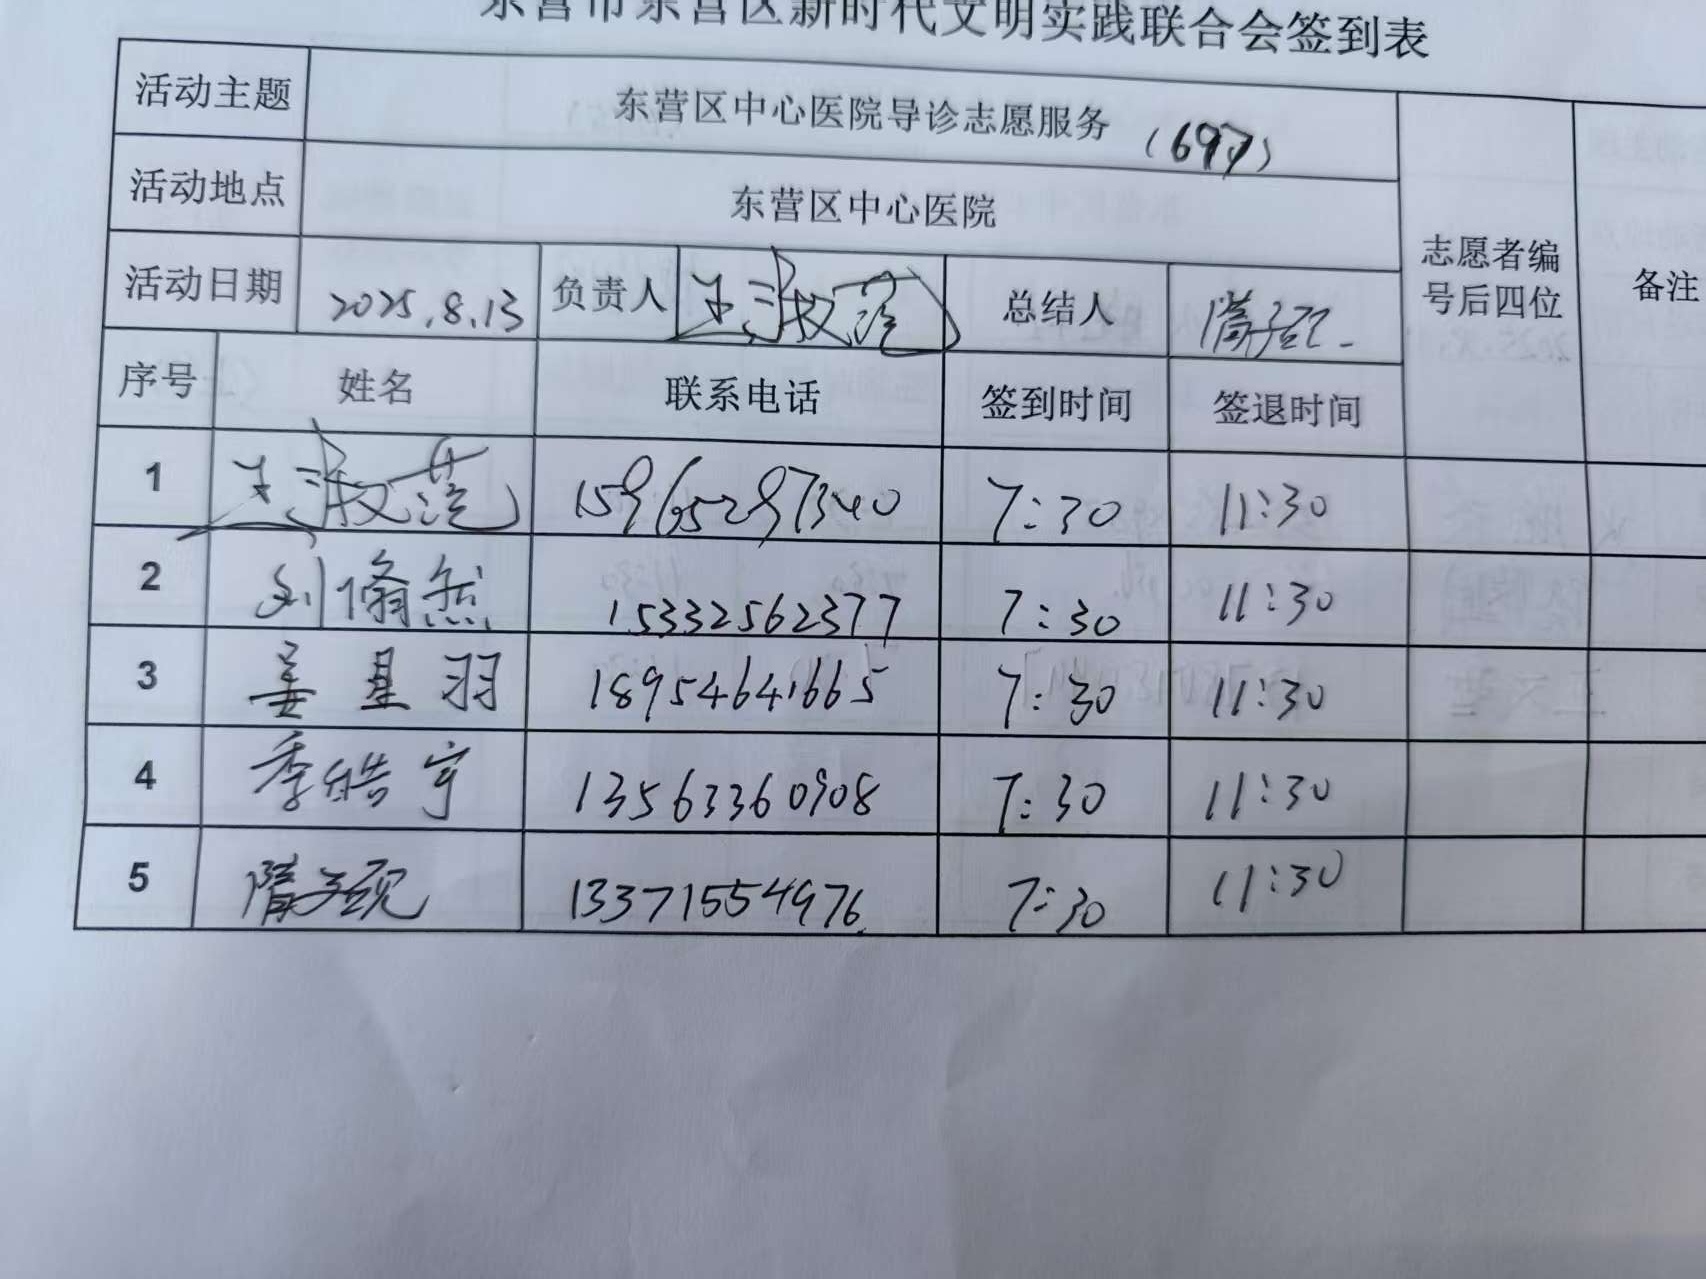 东营市东营区新时代文明实践联合会签到表
活动主题 东营区中心医院导诊志愿服务 (697)
活动地点 东营区中心医院
活动日期 2025.8.13 负责人 王淑范 总结人 志愿者编号后四位 备注
序号 姓名 联系电话 签到时间 签退时间
1 王淑范 15965297340 7:30 11:30
2 刘脩然 15332562377 7:30 11:30
3 姜星羽 18954641665 7:30 11:30
4 季皓宇 13563360908 7:30 11:30
5 隋子砚 13371554976 7:30 11:30